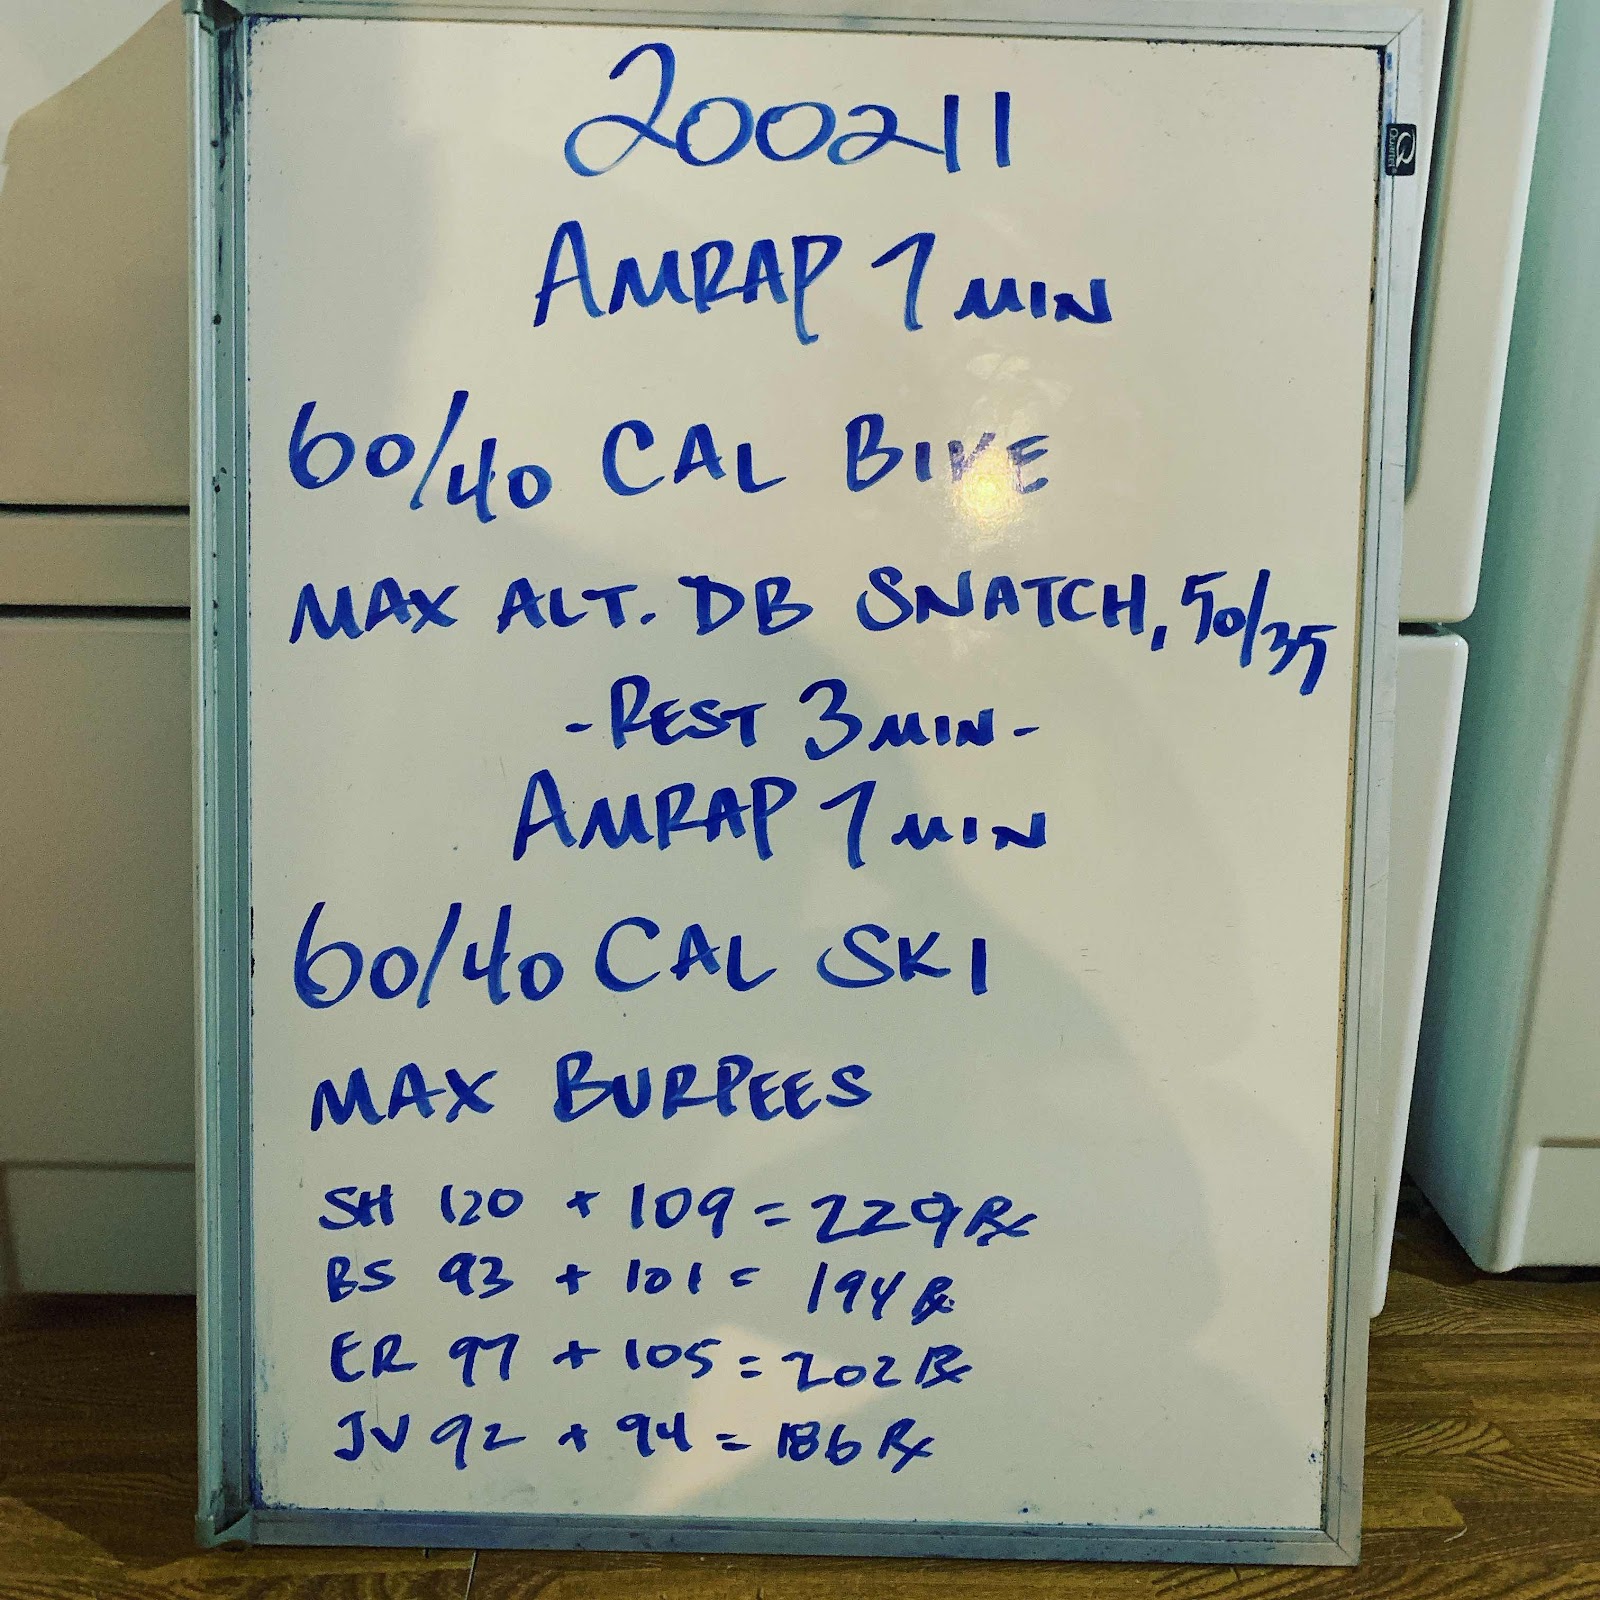 200211
Quartet
AMRAP 7 MIN
60/40 CAL BIKE
MAX ALT. DB SNATCH, 50/35
- REST 3 MIN -
AMRAP 7 MIN
60/40 CAL SKI
MAX BURPEES
SH 120 + 109 = 229 Rx
BS 93 + 101 = 194 Rx
ER 97 + 105 = 202 Rx
JV 92 + 94 = 186 Rx